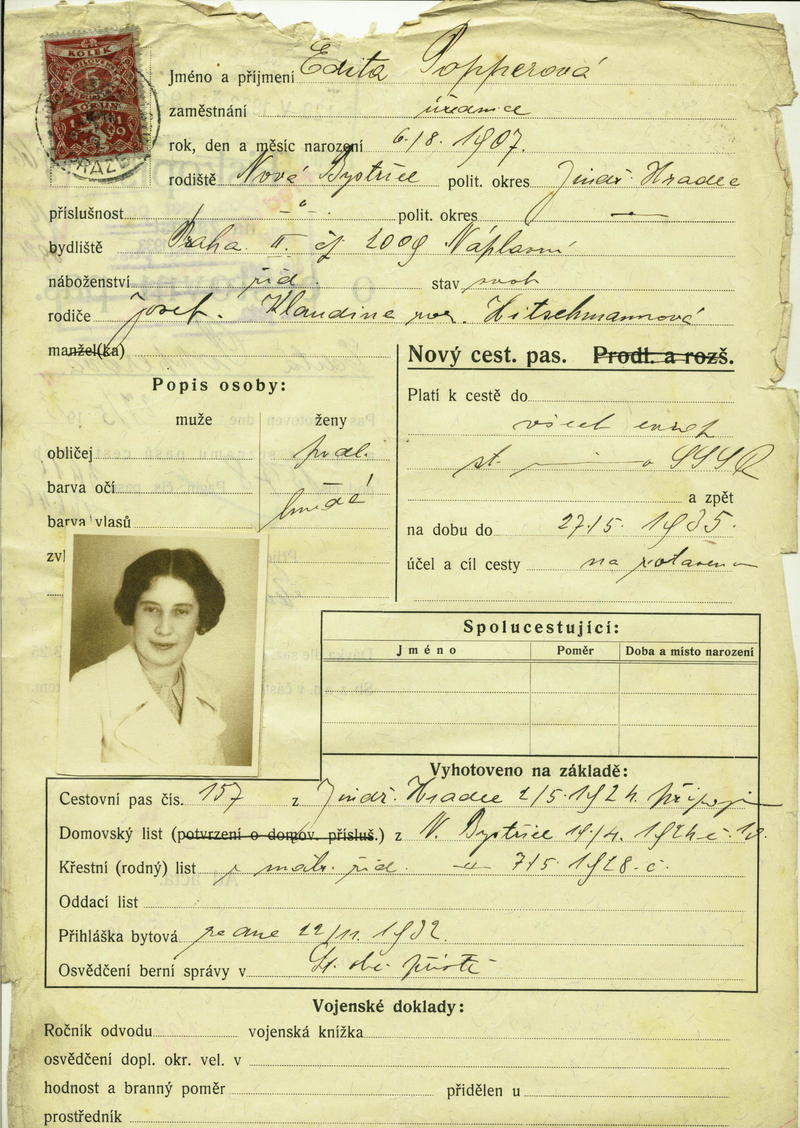 KOLEK
5
PRAZE
Jméno a příjmení Edita Popperová
zaměstnání úřednice
rok, den a měsíc narození 6./8. 1907.
rodiště Nová Bystřice polit. okres Jindř. Hradec
příslušnost - " - polit. okres —
bydliště Praha II. čp 2009 Náplavní
náboženství žid. stav svob
rodiče Josef. Klaudine roz. Hitschmannová
manžel(ka)
Popis osoby:
muže ženy
obličej podl.
barva očí
barva vlasů hnědé
zvl
Nový cest. pas. Prodl. a rozš.
Platí k cestě do
všech evrop
st. SSSR
a zpět
na dobu do 27./5. 1935.
účel a cíl cesty na zotavenou
Spolucestující:
Jméno Poměr Doba a místo narození
Vyhotoveno na základě:
Cestovní pas čís. 157 z Jindř. Hradec 2/5. 1924.
Domovský list (potvrzení o domov. přísluš.) z N. Bystřice 1924
Křestní (rodný) list z matr. žid. 7/5. 1928. č.
Oddací list
Přihláška bytová ze dne 22/11. 1932.
Osvědčení berní správy v
Vojenské doklady:
Ročník odvodu vojenská knížka
osvědčení dopl. okr. vel. v
hodnost a branný poměr přidělen u
prostředník